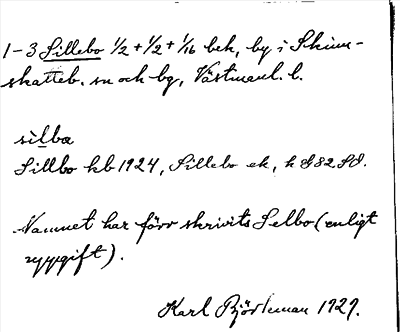 1-3 Sillebo 1/2 + 1/2 + 1/16 bek, by i Skinn-
skatteb. sn och bg, Västmanl. l.
silba
Sillbo kb 1924, Sillebo ek, h G82 SO.
Namnet har förr skrivits Selbo (enligt
uppgift).
Karl Björkman 1929.